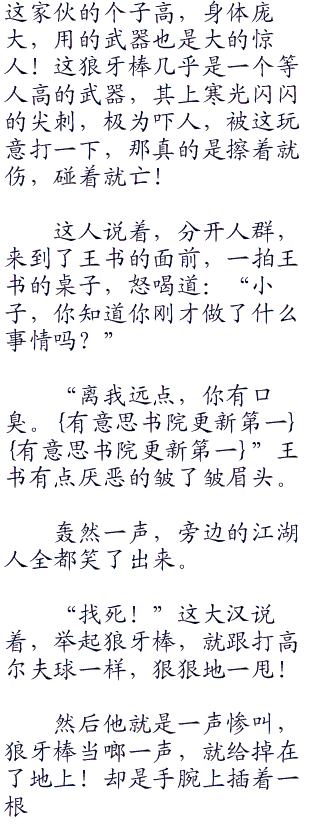 这家伙的个子高，身体庞
大，用的武器也是大的惊
人！这狼牙棒几乎是一个等
人高的武器，其上寒光闪闪
的尖刺，极为吓人，被这玩
意打一下，那真的是擦着就
伤，碰着就亡！
这人说着，分开人群，
来到了王书的面前，一拍王
书的桌子，怒喝道：“小
子，你知道你刚才做了什么
事情吗？”
“离我远点，你有口
臭。{有意思书院更新第一}
{有意思书院更新第一}”王
书有点厌恶的皱了皱眉头。
轰然一声，旁边的江湖
人全都笑了出来。
“找死！”这大汉说
着，举起狼牙棒，就跟打高
尔夫球一样，狠狠地一甩！
然后他就是一声惨叫，
狼牙棒当啷一声，就给掉在
了地上！却是手腕上插着一
根